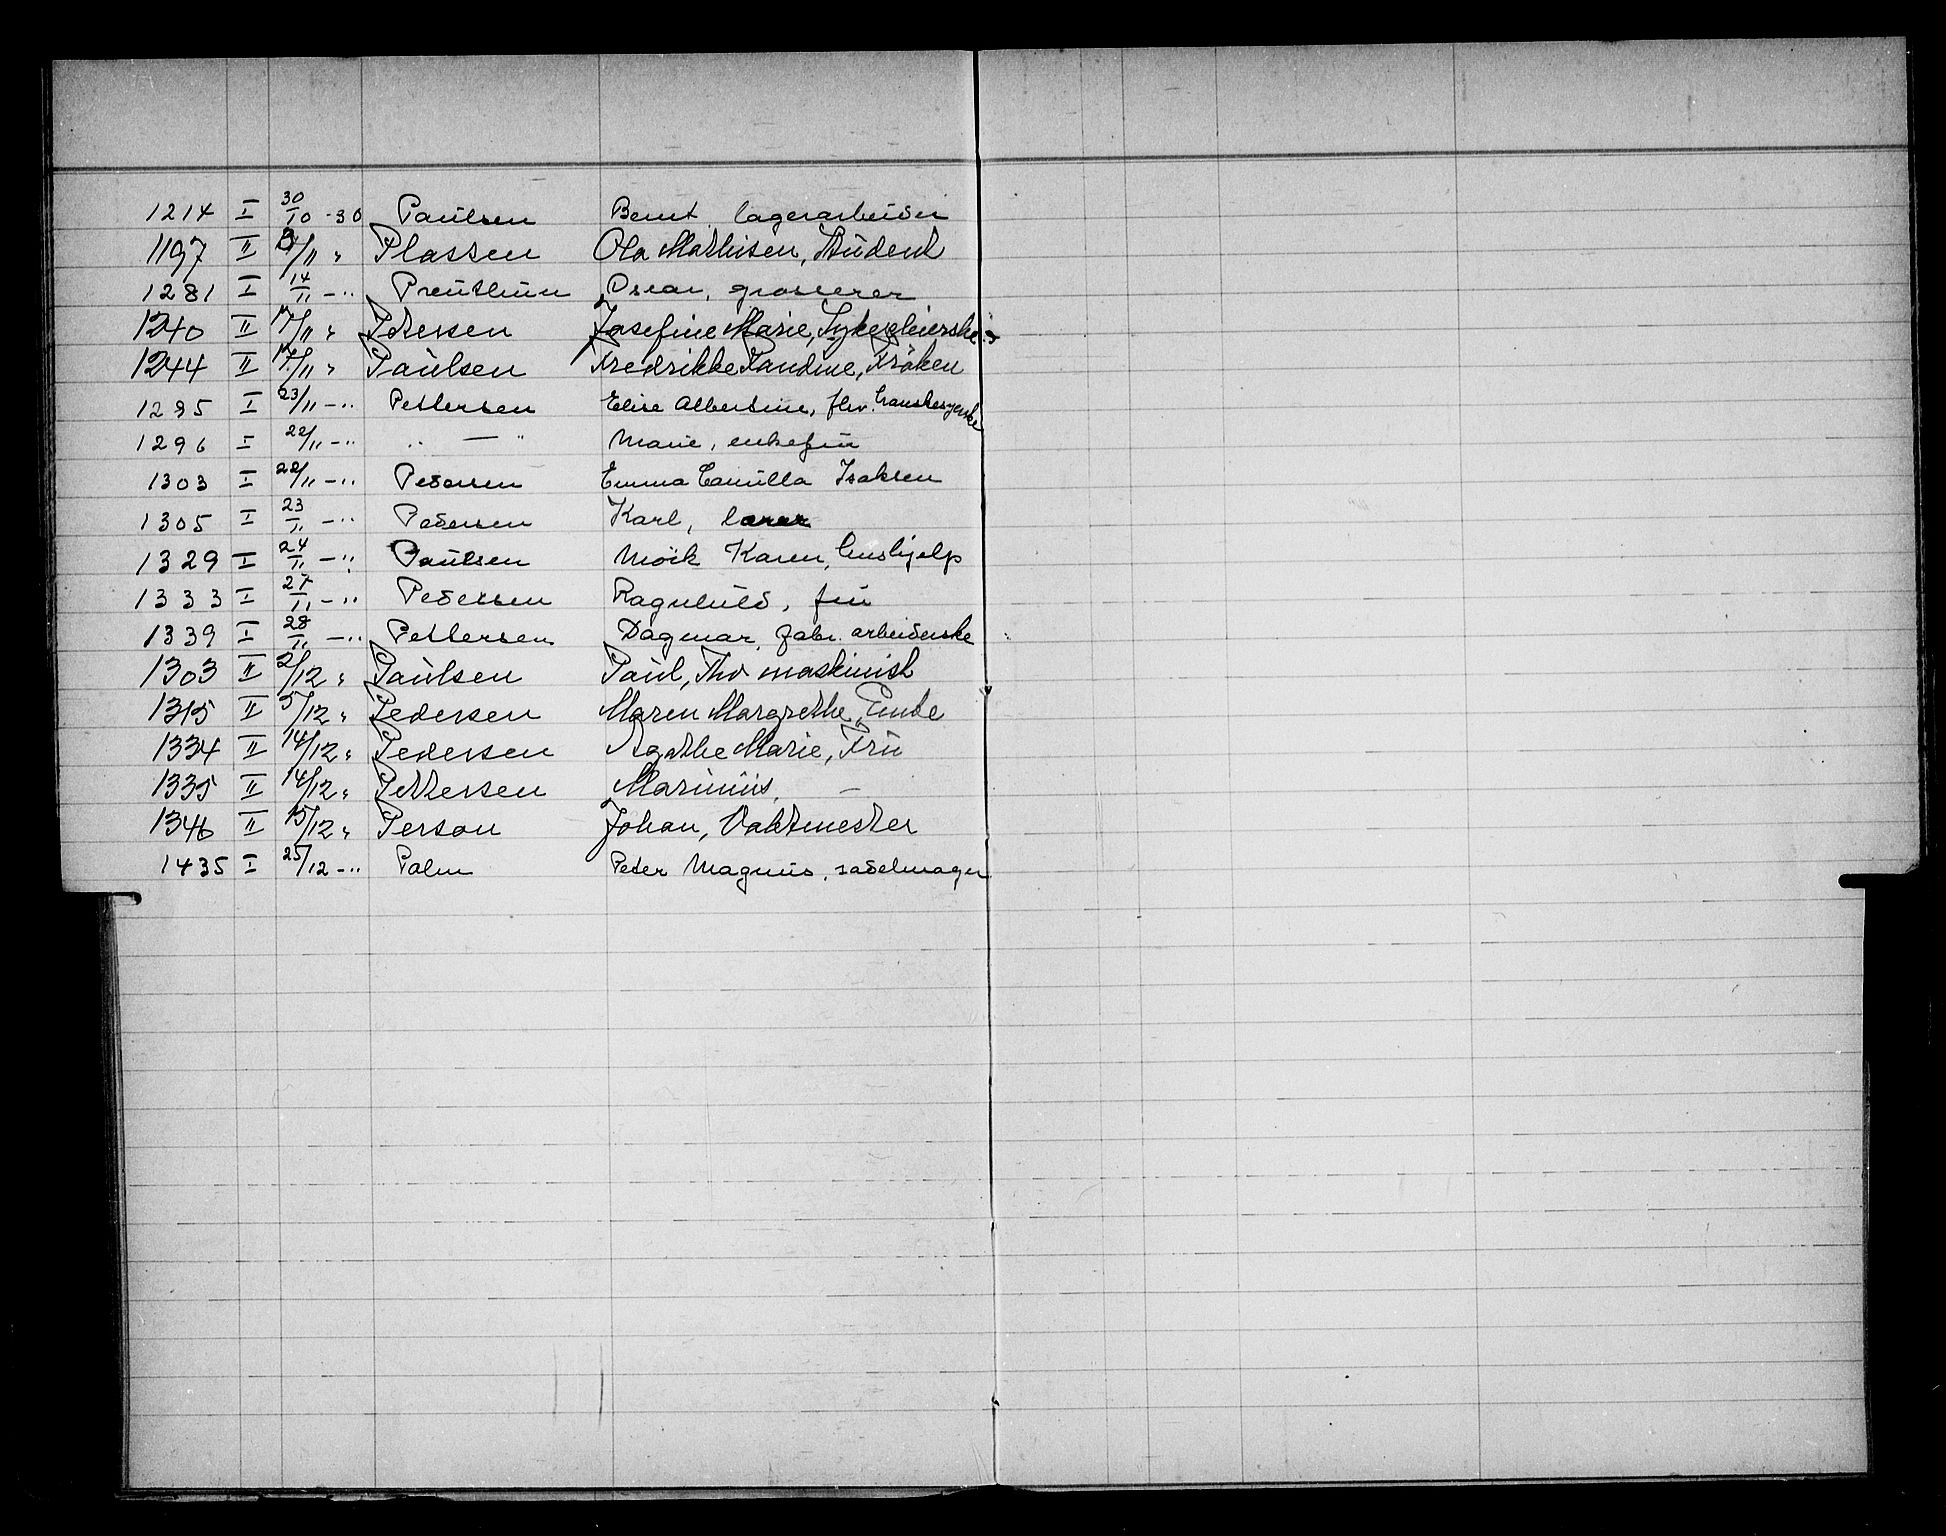 1214 I 30/10 -30 Paulsen Bernt, lagerarbeider
1197 II /11 " Plassen Ola Mathisen, Student
1281 I 14/11 - " Preuthun Oscar, grosserer
1240 II 17/11 " Petersen Josefine Marie, Sykepleierske
1244 II 17/11 " Paulsen Fredrikke Pandine, Frøken
1295 I 23/11 - " Pettersen Elise Albertine, fhv.
1296 I 22/11 - " " — " Marie, enkefru
1303 I 22/11 - " Pedersen Emma Camilla Isaksen
1305 I 23/11 - " Pedersen Karl, lærer
1329 I 24/11 - " Paulsen Mörk Karen, hushjelp
1333 I 27/11 - " Pedersen Ragnhild, fru
1339 I 28/11 - " Pettersen Dagmar, fabr. arbeiderske
1303 II 2/12 " Paulsen Paul, Fhv maskinist
1315 II 5/12 " Pedersen Maren Margrethe, Enke
1334 II 14/12 " Pedersen Agathe Marie, Fru
1335 II 14/12 " Pettersen Marinius, —
1346 II 15/12 " Person Johan, Vaktmester
1435 I 25/12 - " Palm Peter Magnus, sadelmager